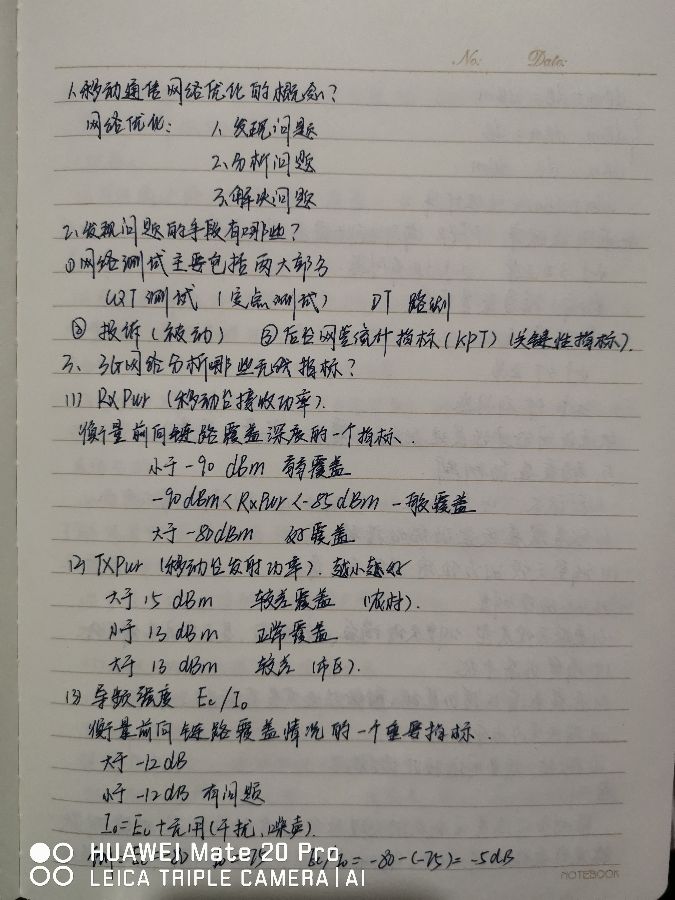 No: Date:
1、移动通信网络优化的概念?
网络优化: 1、发现问题
2、分析问题
3、解决问题
2、发现问题的手段有哪些?
①网络测试主要包括两大部分
CQT测试(定点测试) DT 路测
② 投诉(被动) ③后台网管统计指标(KPT)(关键性指标).
3、3G网络分析哪些无线指标?
(1) RxPwr (移动台接收功率).
衡量前向链路覆盖深度的一个指标.
小于-90 dBm 弱覆盖
-90dBm<RxPwr<-85dBm 一般覆盖
大于-80dBm 好覆盖
(2) TXPwr (移动台发射功率). 越小越好
大于15 dBm 较差覆盖 (农村).
小于13 dBm 正常覆盖
大于13 dBm 较差 (市区).
(3) 导频强度 Ec/Io
衡量前向链路覆盖情况的一个重要指标.
大于-12dB
小于-12dB 有问题
Io=Ec+无用(干扰、噪声).
= -80-(-75)= -5dB
HUAWEI Mate 20 Pro
LEICA TRIPLE CAMERA | AI
NOTEBOOK